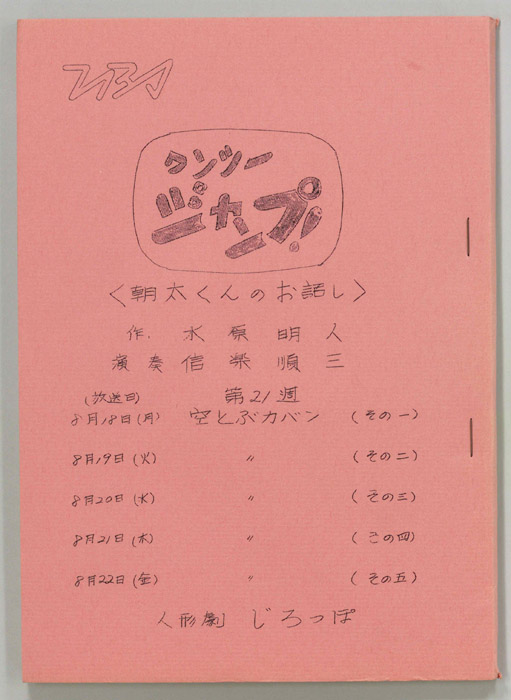 ワンツー
ジャンプ!
〈朝太くんのお話し〉
作. 水原明人
演奏 信楽順三
(放送日) 第21週
8月18日(月) 空とぶカバン (その一)
8月19日(火) 〃 (その二)
8月20日(水) 〃 (その三)
8月21日(木) 〃 (その四)
8月22日(金) 〃 (その五)
人形劇 じろっぽ